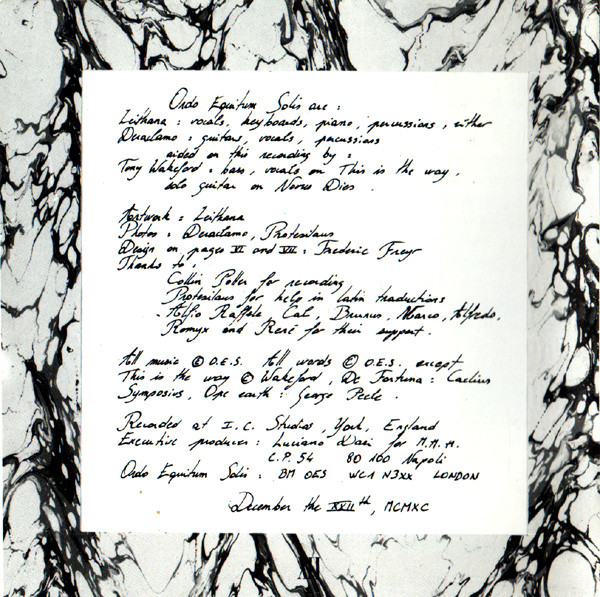 Ordo Equitum Solis are :
Leithana : vocals, keyboards, piano, percussions, zither
Deraclamo : guitars, vocals, percussions
aided on this recording by :
Tony Wakeford : bass, vocals on This is the way,
solo guitar on Novus Dies .
Artwork : Leithana
Photos : Deraclamo, Protesilaus
Design on pages VI and VII : Frederic Freyr
Thanks to :
Collin Potter for recording
Protesilaus for help in latin traductions
Alfio Raffale Cat, Brunus, Marco, Alfredo,
Romyx and René for their support .
All music © O.E.S. All words © O.E.S. except
This is the way © Wakeford, De Fortuna : Caelius
Symposius, One earth : George Peele .
Recorded at I.C. Studios, York, England
Executive producer : Luciano Dari for M.M.M.
C.P. 54 80 100 Napoli
Ordo Equitum Solis : BM OES WC1 N3XX LONDON
December the XXII th, MCMXC